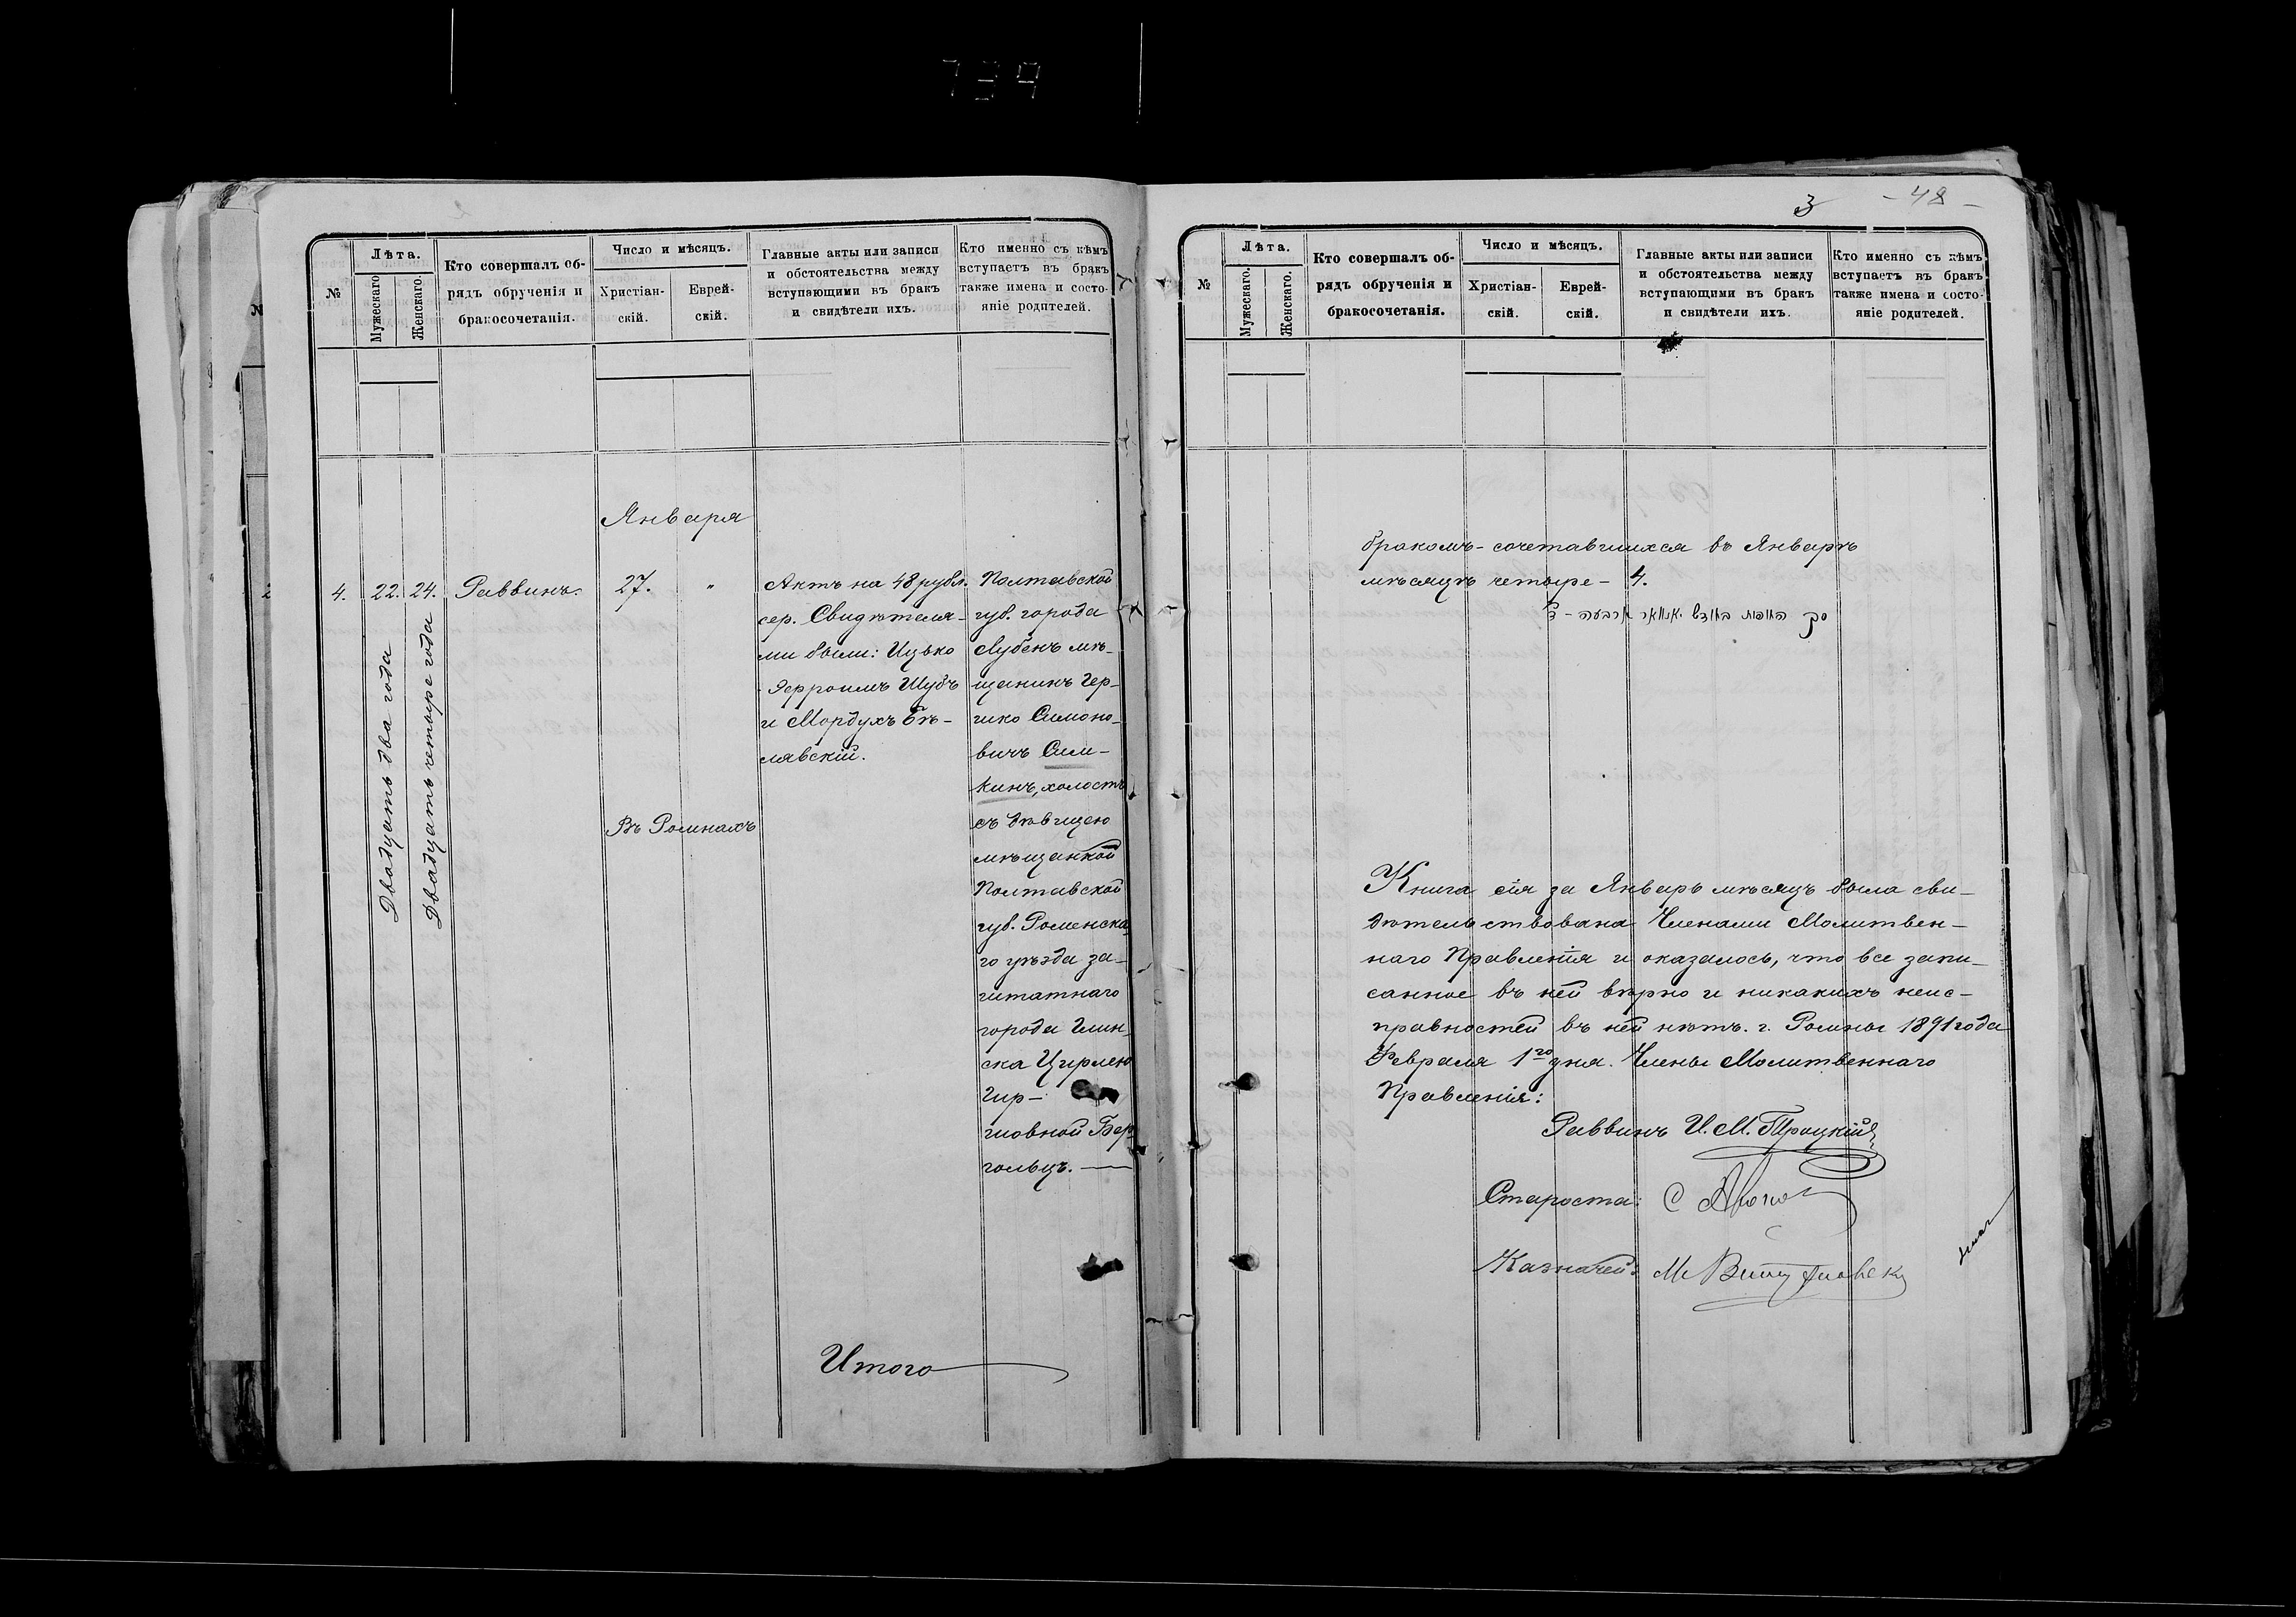 739
№
Лѣта.
Мужескаго.
Женскаго.
Кто совершалъ об-
рядъ обрученія и
бракосочетанія.
Число и мѣсяцъ.
Христіан-
скій.
Еврей-
скій.
Главные акты или записи
и обстоятельства между
вступающими въ бракъ
и свидѣтели ихъ.
Кто именно съ кѣмъ
вступаетъ въ бракъ
также имена и состо-
яніе родителей.
Января
4. 22. 24. Раввинъ. 27. "
Двадцать два года
Двадцать четыре года
Въ Ромнахъ
Актъ на 48 рубл.
сер. Свидѣтеля-
ми были: Ицько
Эфроимъ Шубъ
и Мордухъ Бѣ-
лявскій.
Полтавской
губ. города
Лубенъ мѣ-
щанинъ Гер-
шко Симоно-
вичъ Сим-
кинъ, холостъ
съ дѣвицею
мѣщанкой
Полтавской
губ. Роменска-
го уѣзда за-
штатнаго
города Глин-
ска Цирлею
Гир-
шовной Бер-
гольцъ.
Итого
3
- 48 -
№
Лѣта.
Мужескаго.
Женскаго.
Кто совершалъ об-
рядъ обрученія и
бракосочетанія.
Число и мѣсяцъ.
Христіан-
скій.
Еврей-
скій.
Главные акты или записи
и обстоятельства между
вступающими въ бракъ
и свидѣтели ихъ.
Кто именно съ кѣмъ
вступаетъ въ бракъ
также имена и состо-
яніе родителей.
бракомъ-сочетавшихся въ Январѣ
мѣсяцѣ четыре - 4.
סך בחודש יאנואר ארבעה - ד
Книга сія за Январь мѣсяцъ была сви-
дѣтельствована Членами Молитвен-
наго Правленія и оказалось, что все запи-
санное въ ней вѣрно и никакихъ неис-
правностей въ ней нѣтъ. г. Ромны 1891 года
Февраля 1го дня. Члены Молитвеннаго
Правленія:
Раввинъ И. М. Троцкій
Староста: С
Казначей: М